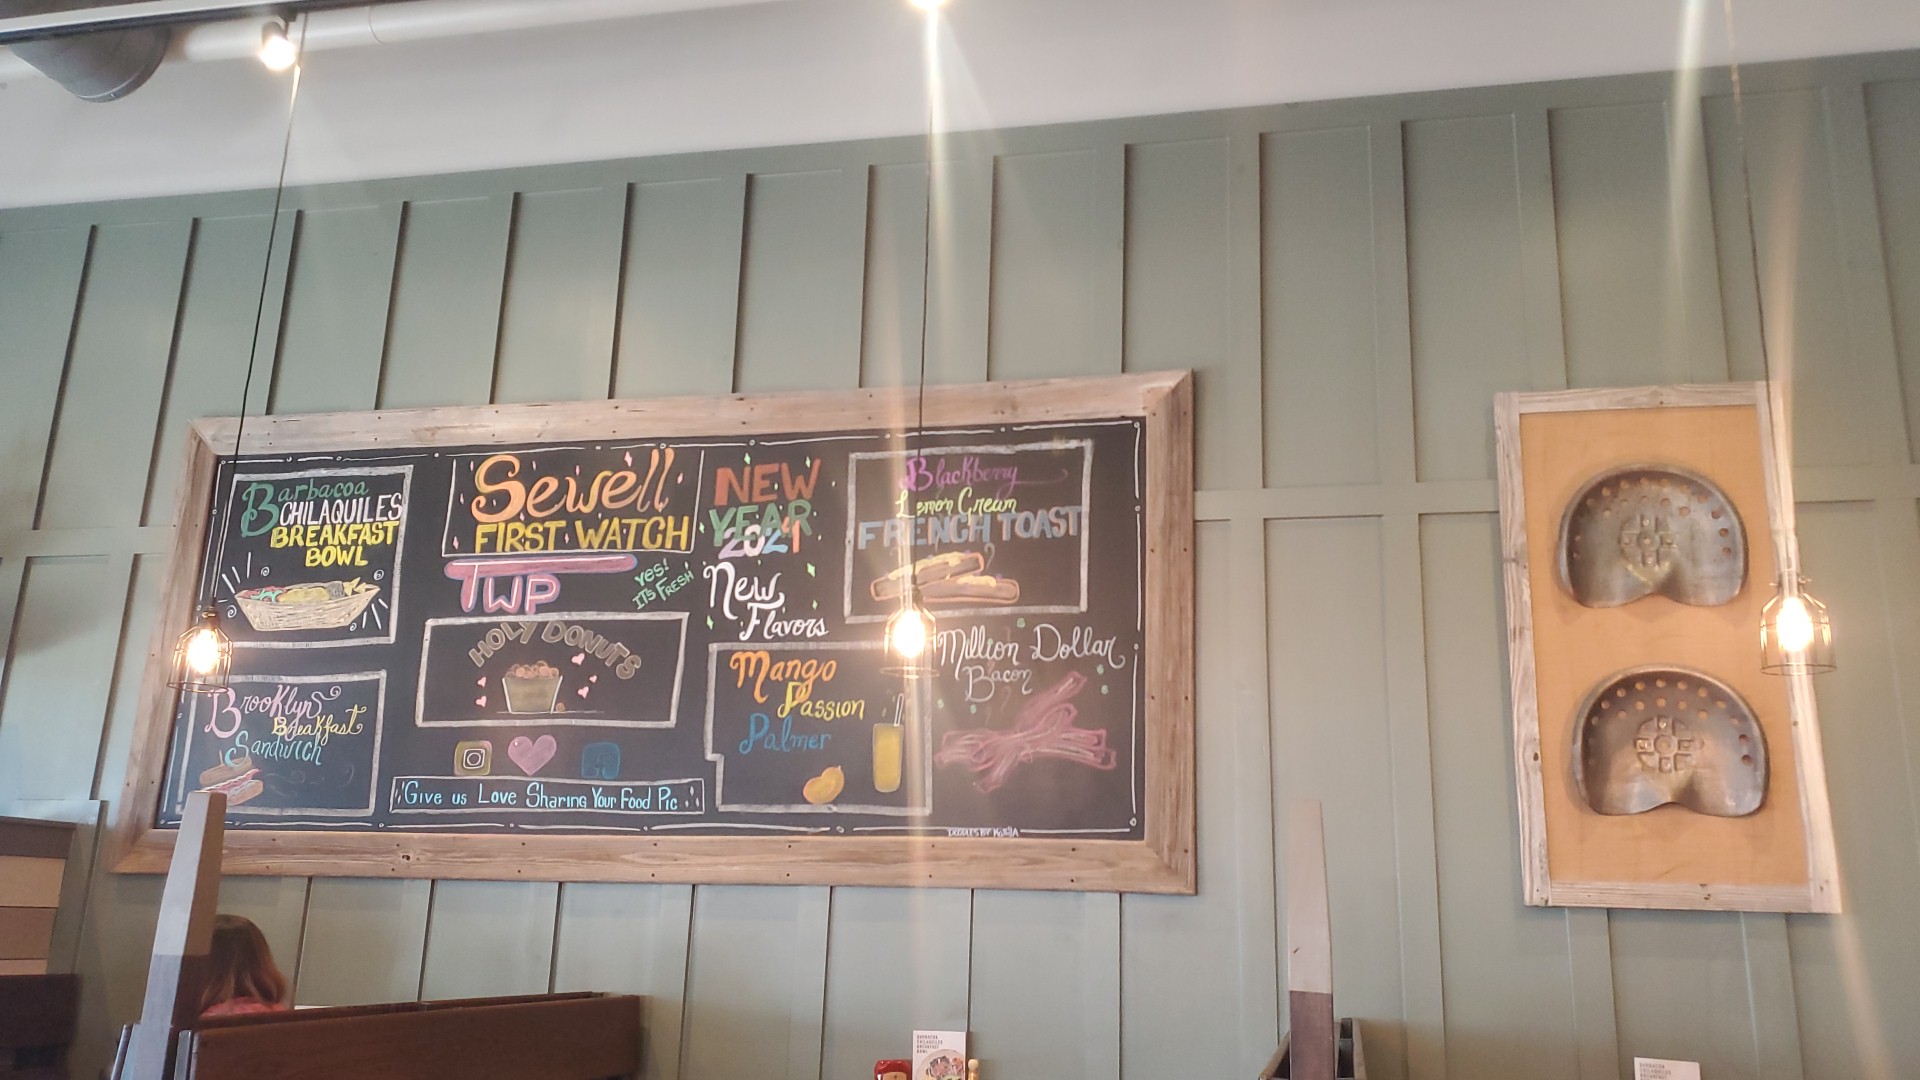 Barbacoa
CHILAQUILES
BREAKFAST
BOWL
Brooklyn
Breakfast
Sandwich
Sewell
FIRST WATCH
TWP
YES!
ITS FRESH
HOLY DONUTS
Give us Love Sharing Your Food Pic
NEW
YEAR
2024
New
Flavors
Mango
Passion
Palmer
Blackberry
Lemon Cream
FRENCH TOAST
Million Dollar
Bacon
DOODLES BY
BARBACOA
CHILAQUILES
BREAKFAST
BOWL
BARBACOA
CHILAQUILES
BREAKFAST